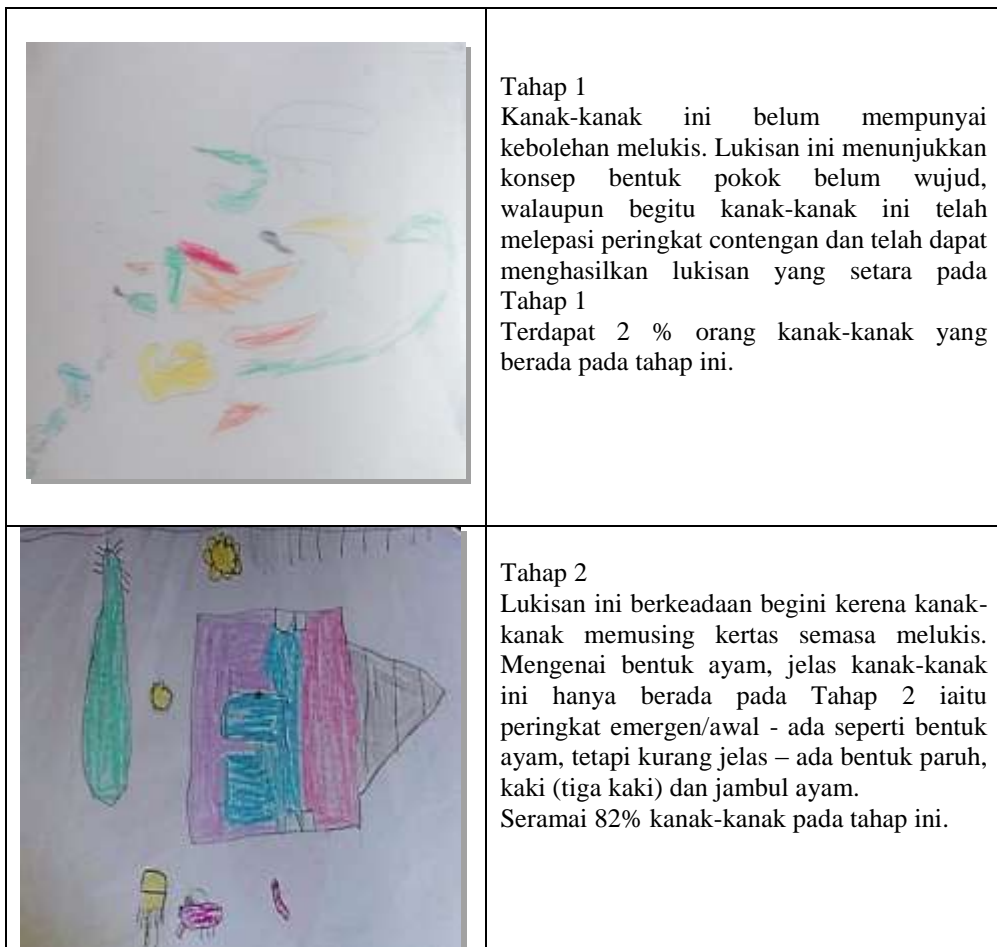 Tahap 1
Kanak-kanak ini belum mempunyai
kebolehan melukis. Lukisan ini menunjukkan
konsep bentuk pokok belum wujud,
walaupun begitu kanak-kanak ini telah
melepasi peringkat contengan dan telah dapat
menghasilkan lukisan yang setara pada
Tahap 1
Terdapat 2 % orang kanak-kanak yang
berada pada tahap ini.
Tahap 2
Lukisan ini berkeadaan begini kerena kanak-
kanak memusing kertas semasa melukis.
Mengenai bentuk ayam, jelas kanak-kanak
ini hanya berada pada Tahap 2 iaitu
peringkat emergen/awal - ada seperti bentuk
ayam, tetapi kurang jelas – ada bentuk paruh,
kaki (tiga kaki) dan jambul ayam.
Seramai 82% kanak-kanak pada tahap ini.